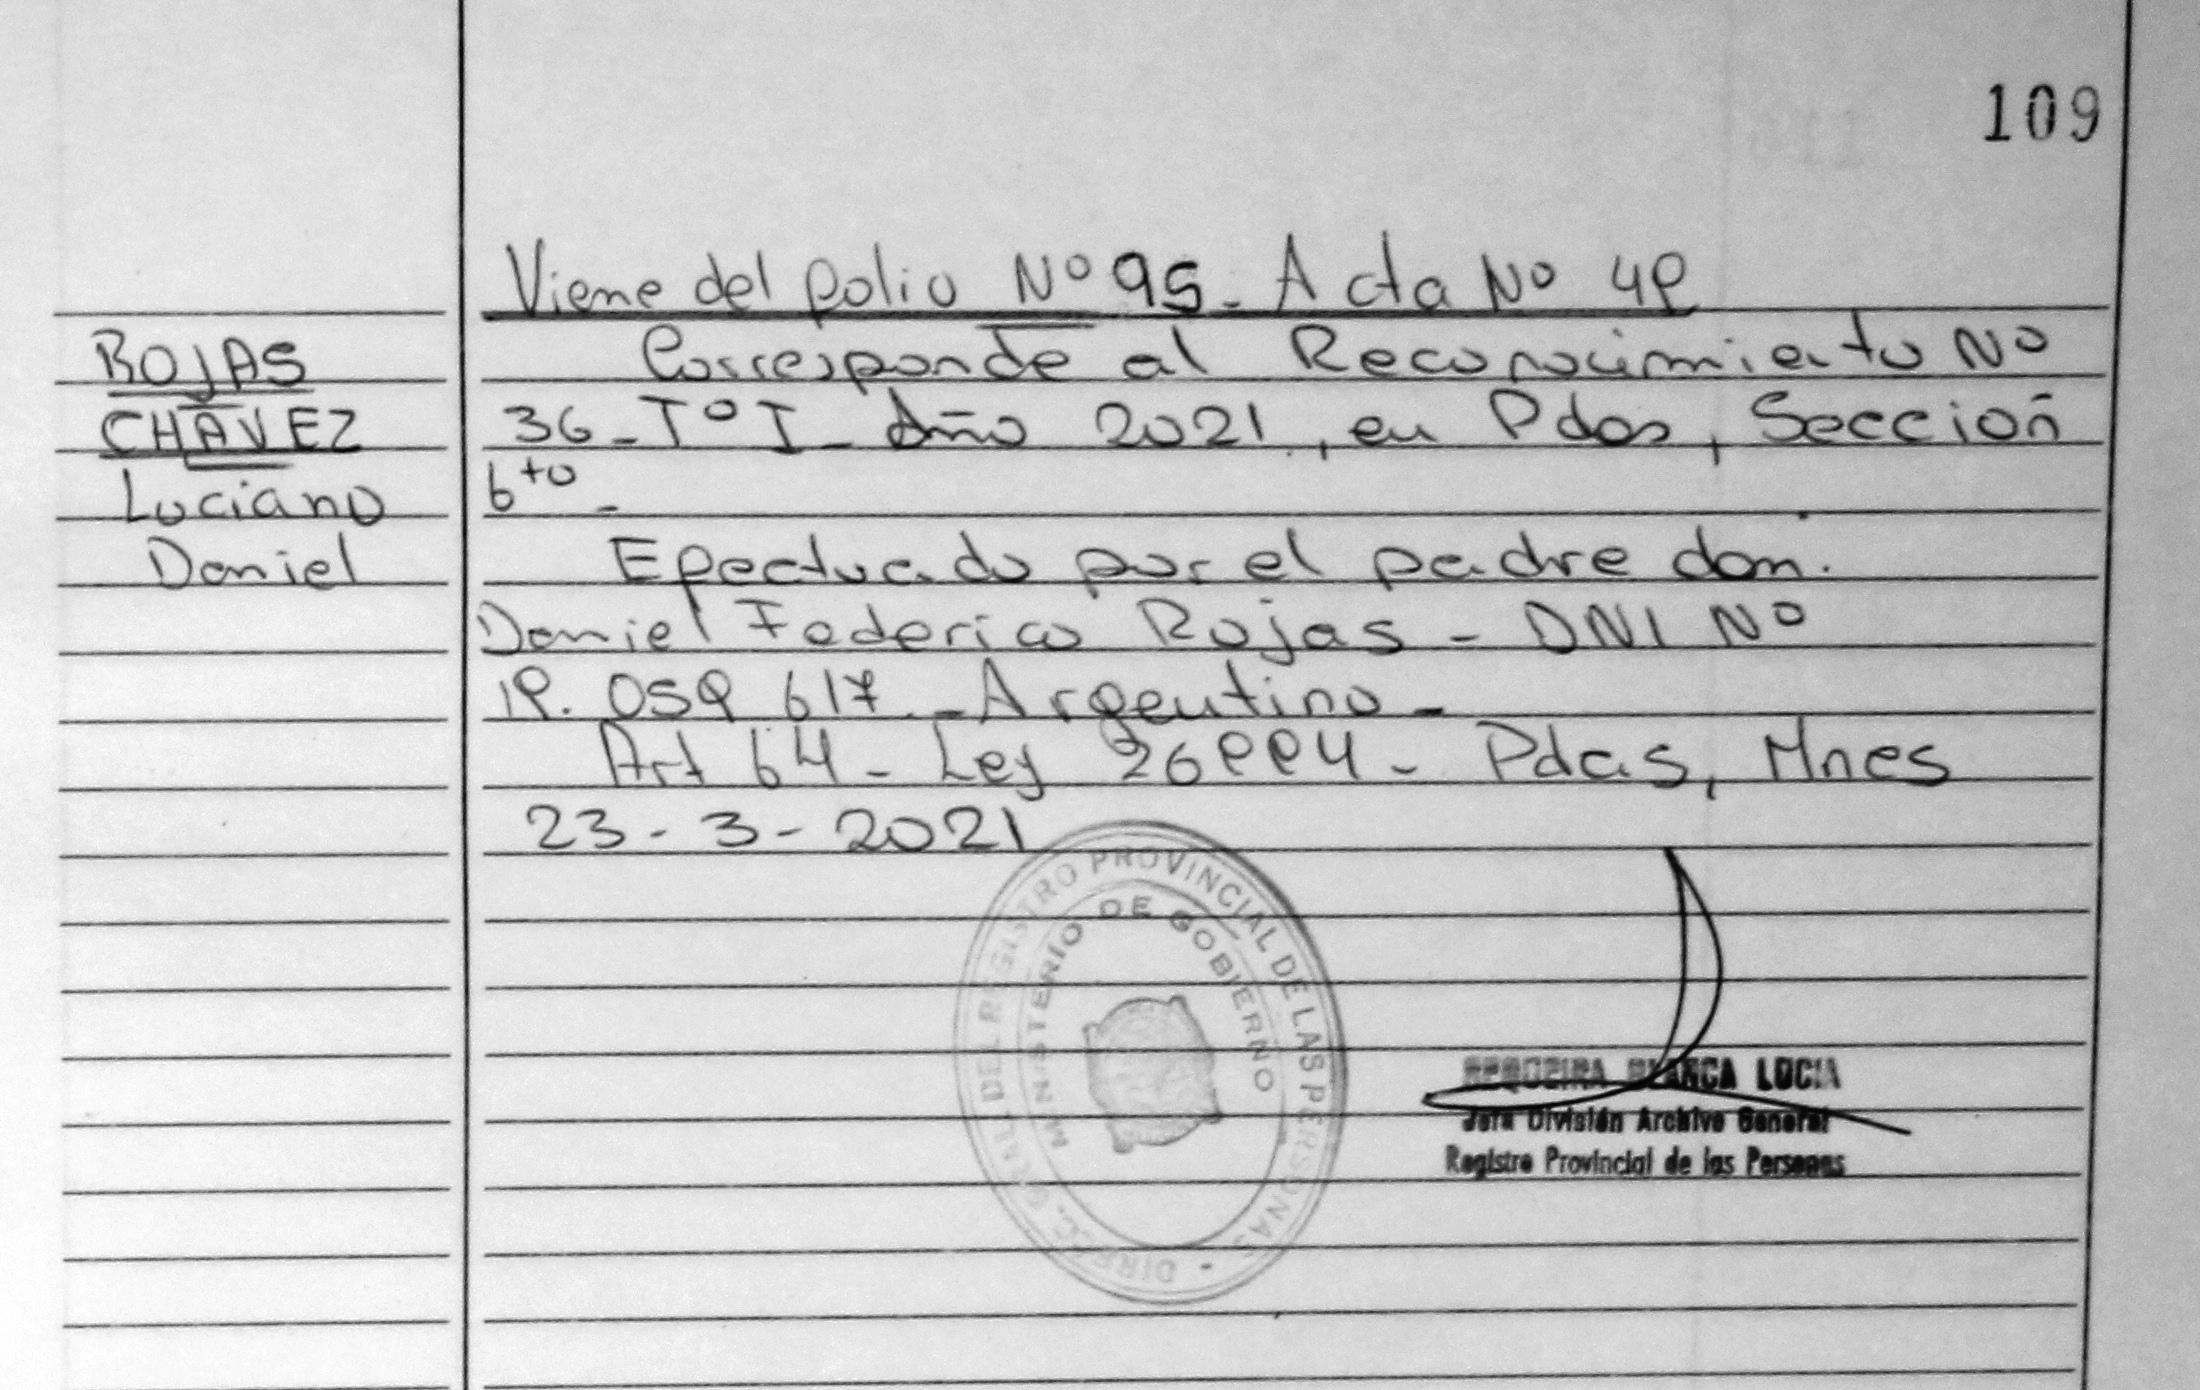 109
Viene del folio Nº 95 - Acta Nº 48
ROJAS
CHÁVEZ
Luciano
Daniel
Corresponde al Reconocimiento Nº
36 - Tº I - Año 2021, en Pdas, Sección
6to -
Efectuado por el padre don.
Daniel Federico Rojas - DNI Nº
18. 059 617 - Argentino -
Art 64 - Ley 26994 - Pdas, Mnes
23 - 3 - 2021
DIREC. GRAL. DEL REGISTRO PROVINCIAL DE LAS PERSONAS
MINISTERIO DE GOBIERNO
BLANCA LUCIA
Jefa División Archivo General
Registro Provincial de las Personas